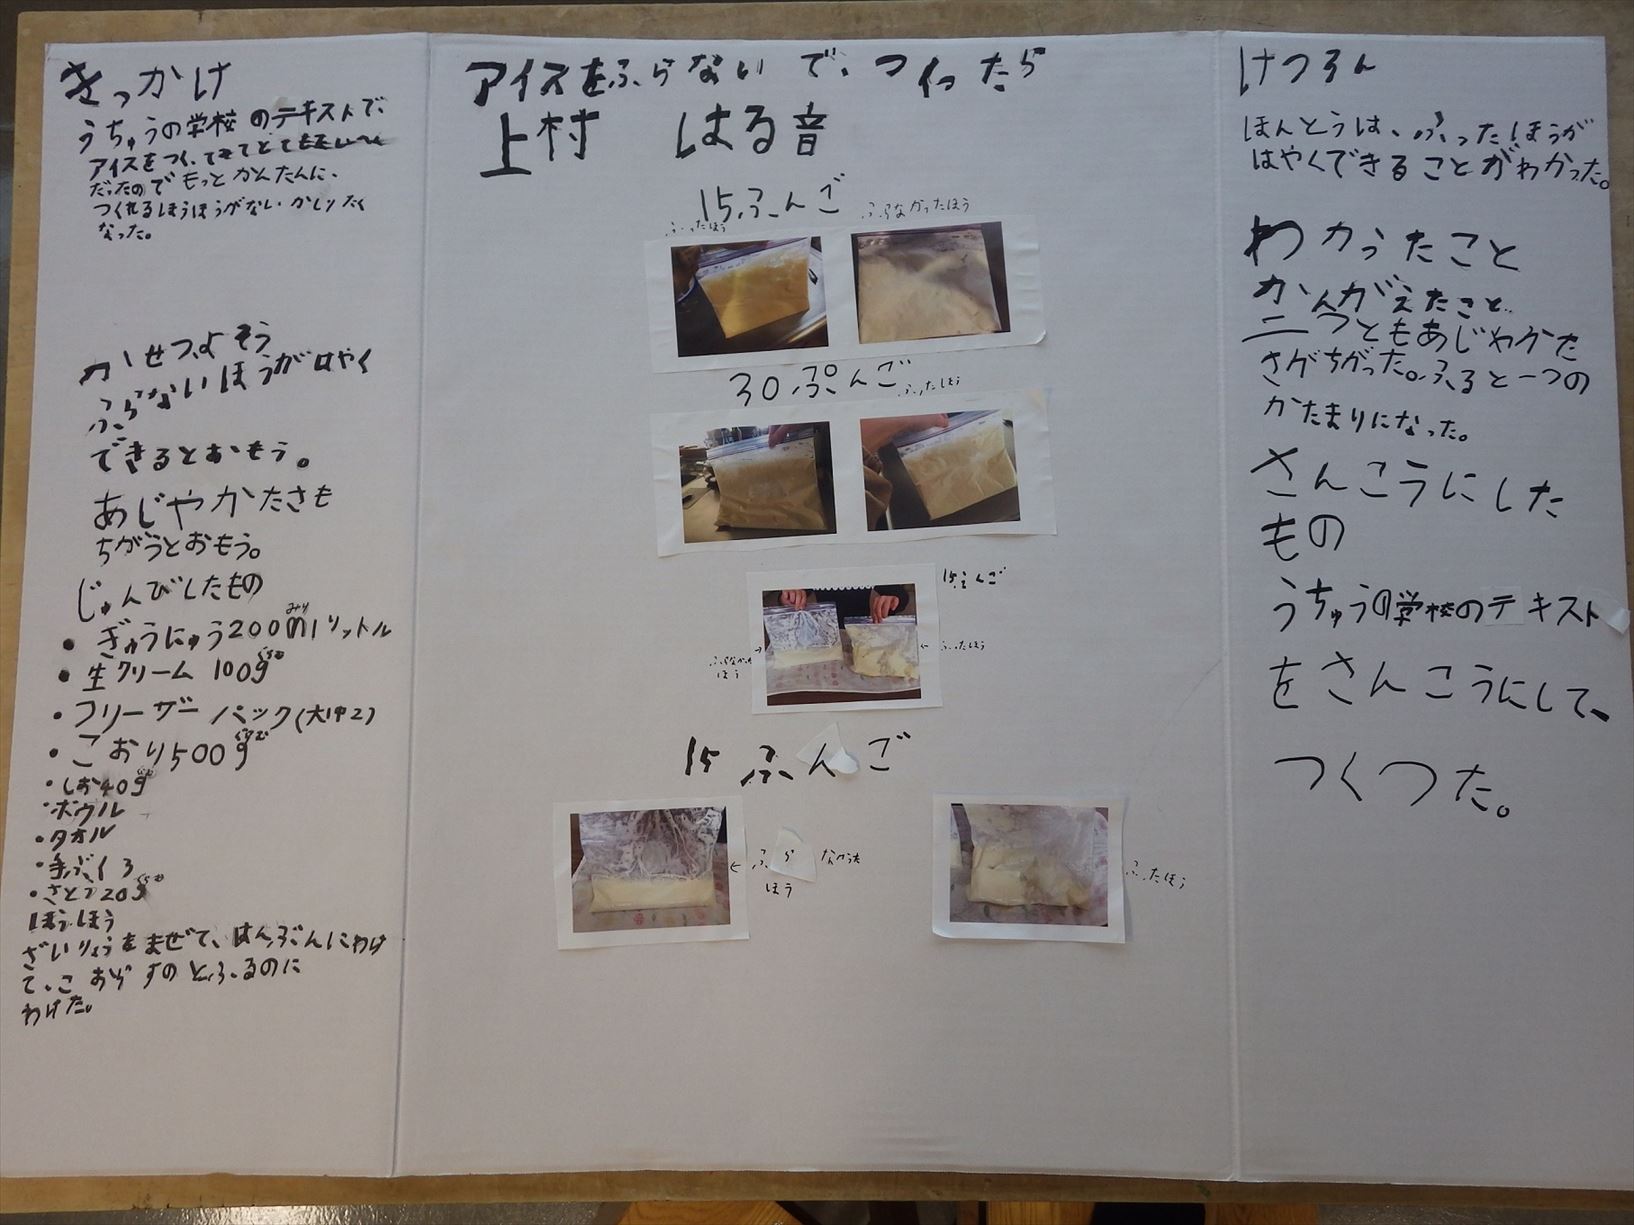 きっかけ
うちゅうの学校のテキストで、
アイスをつくってみてとても
だったのでもっとかんたんに、
つくれるほうほうがないかしりたく
なった。
かせつ、よそう
ふらないほうがはやく
できるとおもう。
あじやかたさも
ちがうとおもう。
じゅんびしたもの
・ぎゅうにゅう200mlリットル
みり
・生クリーム 100g
ぐらむ
・フリーザーバック(大1中2)
・こおり500g
ぐらむ
・しお40g
ぐらむ
・ボウル
・タオル
・手ぶくろ
・さとう20g
ぐらむ
ほうほう
ざいりょうをまぜて、はんぶんにわけ
て、こおらすのとふるのに
わけた。
アイスをふらないで、つくったら
上村 はる音
15ふんご
ふったほう
ふらなかったほう
30ぷんご
ふったほう
15ふんご
ふらなかった
ほう
→
← ふったほう
15ふんご
← ふらなかった
ほう
ふったほう
けつろん
ほんとうは、ふったほうが
はやくできることがわかった。
わかったこと
かんがえたこと
二つともあじやかた
さがちがった。ふると一つの
かたまりになった。
さんこうにした
もの
うちゅうの学校のテキスト
をさんこうにして、
つくった。